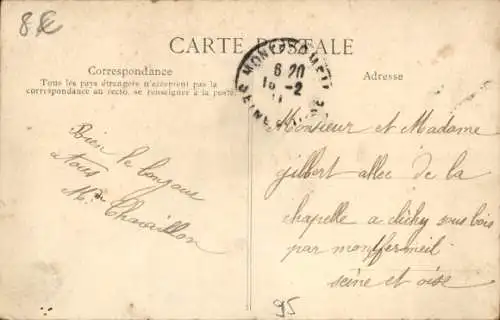 8€
CARTE POSTALE
Correspondance
Tous les pays étrangers n'acceptent pas la
correspondance au recto, se renseigner à la poste.
Adresse
MONTFERMEIL
6 20
18 -2
SEINE
Bien le bonjour
a tous
Chavaillon
Monsieur et Madame
gilbert allee de la
chapelle a clichy sous bois
par montfermeil
seine et oise
95